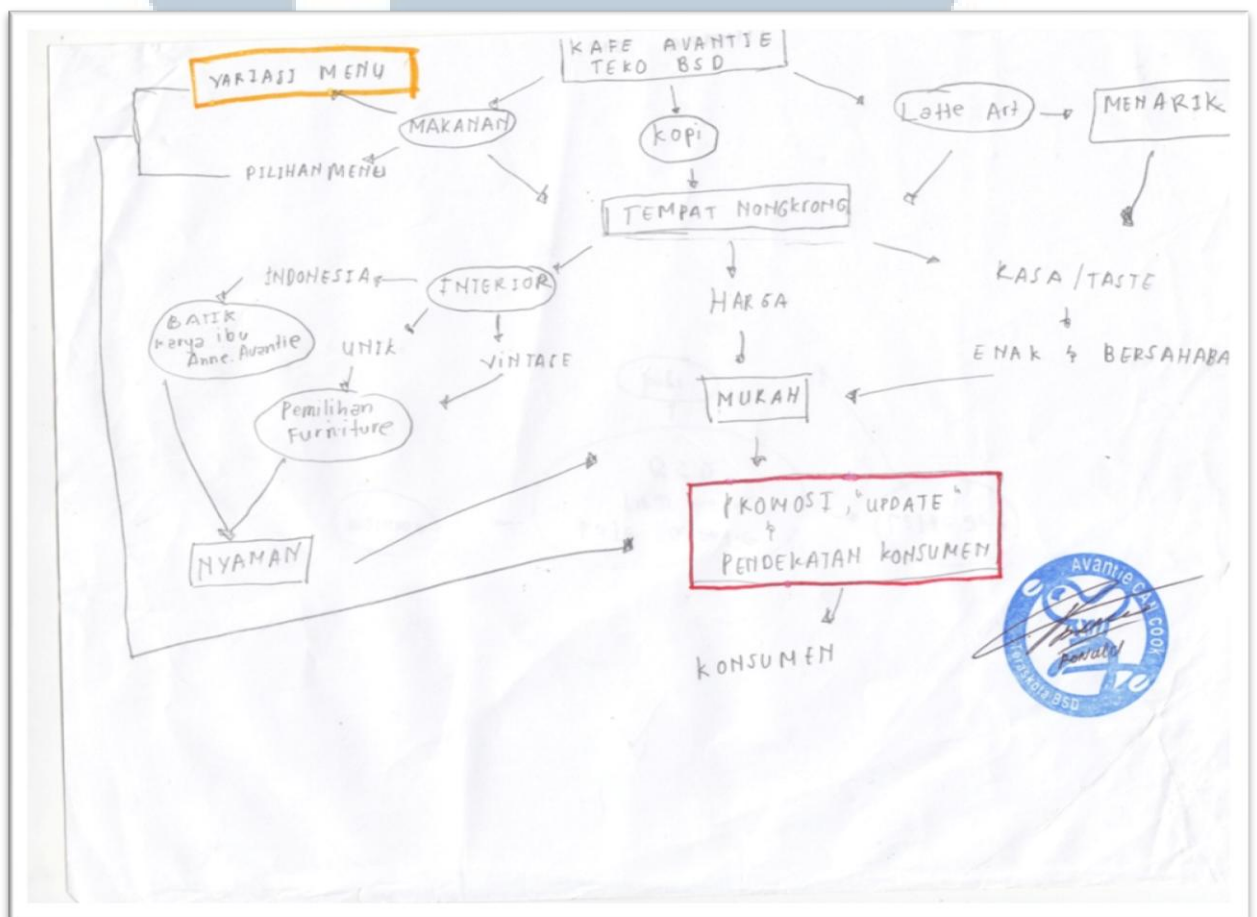 KAFE AVANTIE
TEKO BSD
VARIASI MENU
MAKANAN
KOPI
Latte Art
MENARIK
PILIHAN MENU
TEMPAT NONGKRONG
INDONESIA
INTERIOR
HARGA
RASA/TASTE
BATIK
Karya ibu
Anne. Avantie
UNIK
VINTAGE
ENAK & BERSAHABA
Pemilihan
Furniture
MURAH
PROMOSI, "UPDATE"
&
PENDEKATAN KONSUMEN
NYAMAN
KONSUMEN
Avantie CAN COOK
Donald
Teraskota BSD